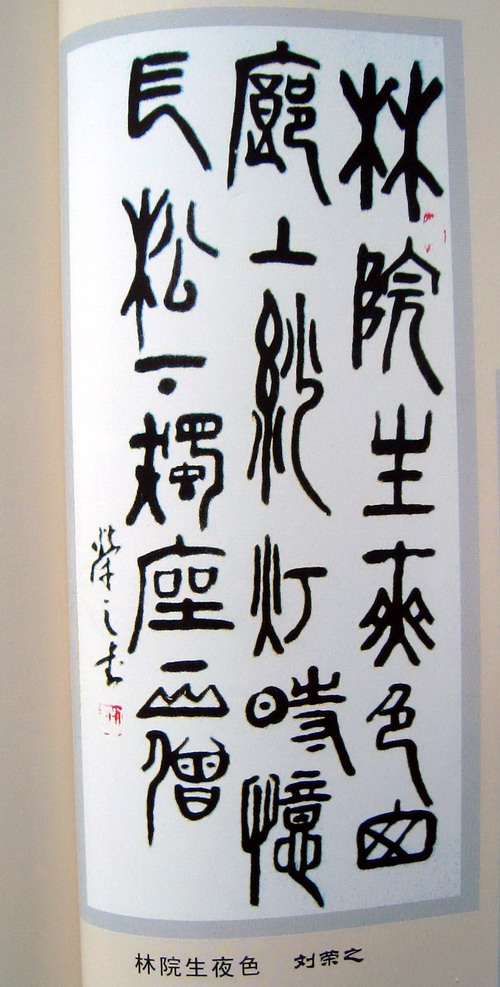 林院生夜色西
廊上紗灯時憶
長松下獨座一山僧
榮之書
林院生夜色 刘荣之